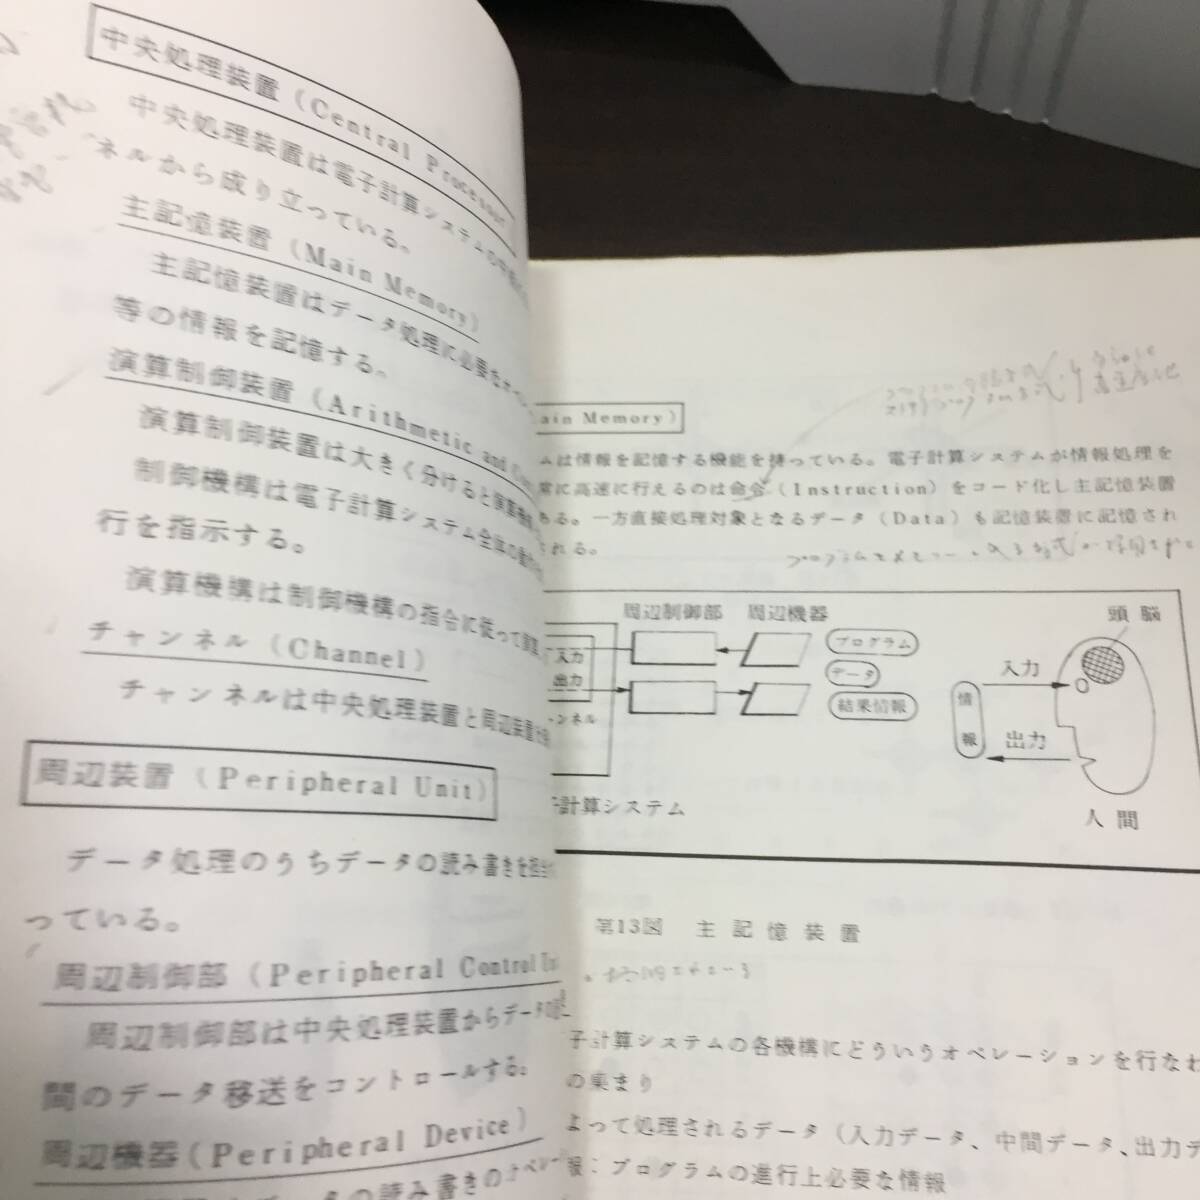 中央処理装置（Central Processor
中央処理装置は電子計算システムの
ネルから成り立っている。
主記憶装置（Main Memory）
主記憶装置はデータ処理に必要な
等の情報を記憶する。
演算制御装置（Arithmetic and
演算制御装置は大きく分けると演算機
制御機構は電子計算システム全体の
行を指示する。
演算機構は制御機構の指令に従って演算
チャンネル（Channel）
チャンネルは中央処理装置と周辺装置
周辺装置（Peripheral Unit）
データ処理のうちデータの読み書きを担
っている。
周辺制御部（Peripheral Control
周辺制御部は中央処理装置からデータ
間のデータ移送をコントロールする。
周辺機器（Peripheral Device）
データの読み書きのオペレー
ain Memory）
ムは情報を記憶する機能を持っている。電子計算システムが情報処理を
常に高速に行えるのは命令（Instruction）をコード化し主記憶装置
ある。一方直接処理対象となるデータ（Data）も記憶装置に記憶され
される。
周辺制御部 周辺機器
入力
出力
ンネル
プログラム
データ
結果情報
子計算システム
情報
入力
出力
頭脳
人間
第13図 主記憶装置
子計算システムの各機構にどういうオペレーションを行なわ
の集まり
よって処理されるデータ（入力データ、中間データ、出力デ
報：プログラムの進行上必要な情報